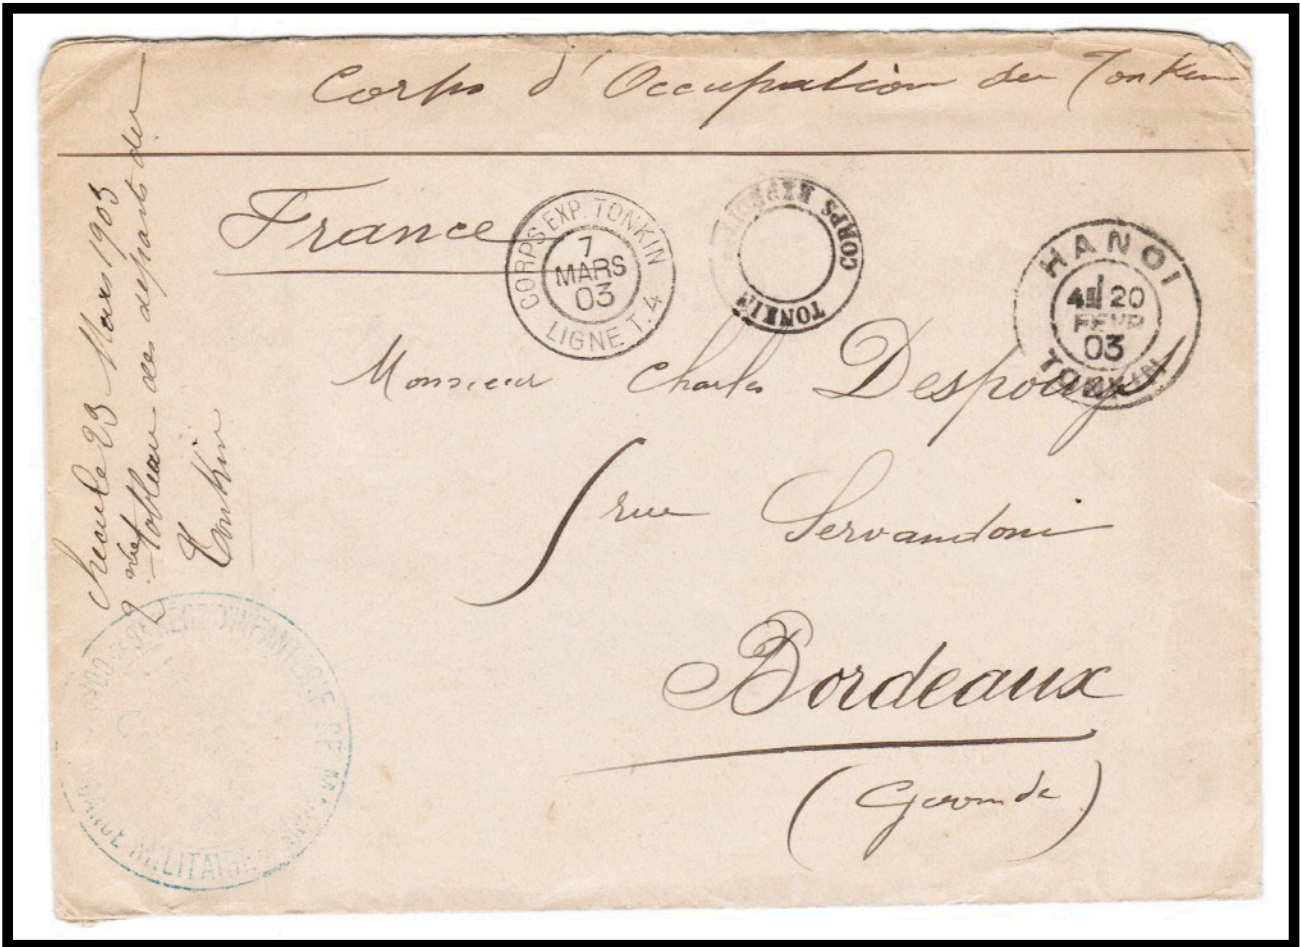 Corps d'Occupation du Tonkin
France
CORPS EXP. TONKIN
7
MARS
03
LIGNE T. 4
CORPS EXPED
TONKIN
HANOI
20
FEVR
03
TONKIN
Monsieur Charles Despouys
rue Servandoni
Bordeaux
(Gironde)
23 Mars 1903
tableau des départs du
Tonkin
REGT D'INFANTERIE DE MARINE
MILITAIRE